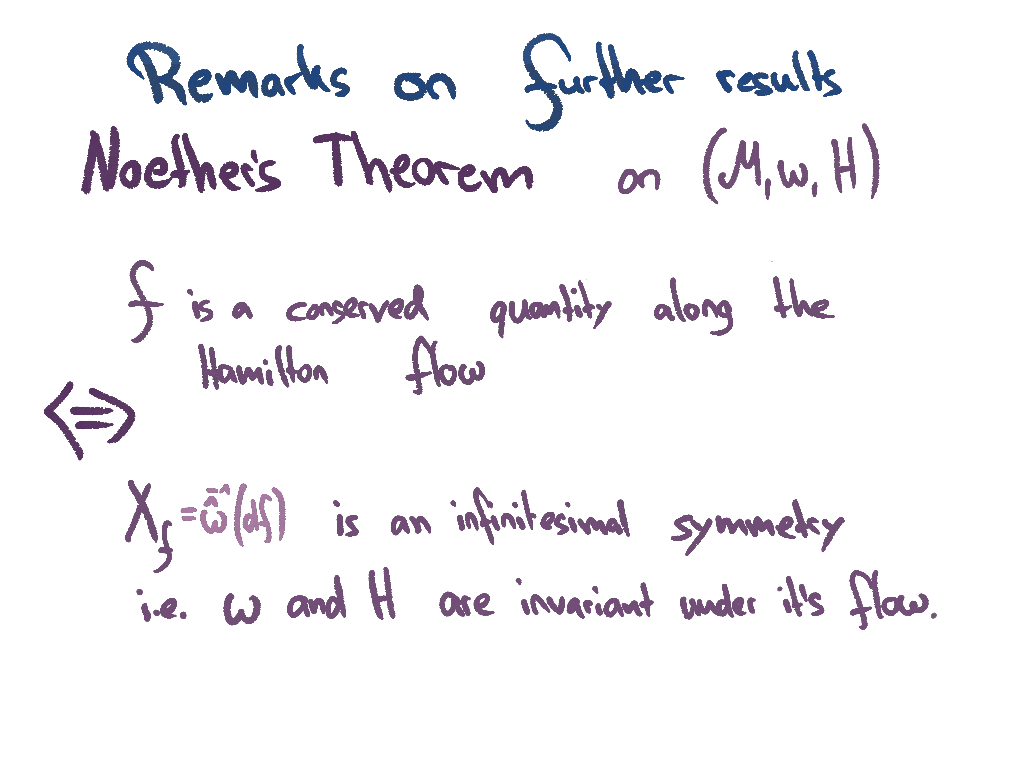 Remarks on further results
Noether's Theorem on (M, ω, H)
f is a conserved quantity along the
Hamilton flow
⟺
X_f = ω̂⁻¹(df) is an infinitesimal symmetry
i.e. ω and H are invariant under it's flow.